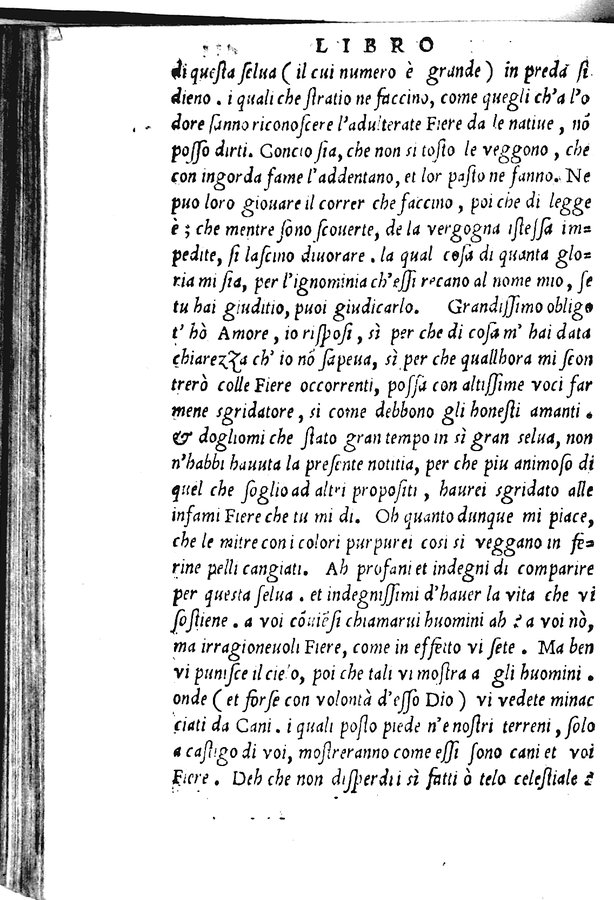 LIBRO
di questa ſelua ( il cui numero è grande ) in preda ſi
dieno . i quali che ſtratio ne faccino, come quegli ch'a l'o
dore ſanno riconoſcere l'adulterate Fiere da le natiue , nõ
poſſo dirti. Concio ſia, che non si toſto le veggono , che
con ingorda fame l'addentano, et lor paſto ne fanno. Ne
puo loro giouare il correr che faccino , poi che di legge
è ; che mentre ſono ſcouerte, de la vergogna iſteſſa im=
pedite, ſi laſcino diuorare . la qual coſa di quanta glo=
ria mi ſia, per l'ignominia ch'eſſi recano al nome mio, ſe
tu hai giuditio, puoi giudicarlo. Grandiſſimo obligo
t' hò Amore , io riſpoſi , sì per che di coſa m' hai data
chiarezza ch' io nõ ſapeua, sì per che quallhora mi ſcon
trerò colle Fiere occorrenti, poſſa con altiſſime voci far
mene sgridatore , si come debbono gli honeſti amanti .
& dogliomi che ſtato gran tempo in sì gran selua, non
n'habbi hauuta la preſente notitia, per che piu animoſo di
quel che ſoglio ad altri propoſiti , haurei sgridato alle
infami Fiere che tu mi di. Oh quanto dunque mi piace,
che le mitre con i colori purpurei cosi si veggano in fe=
rine pelli cangiati. Ah profani et indegni di comparire
per questa ſelua . et indegniſſimi d'hauer la vita che vi
ſoſtiene . a voi cõuieſi chiamarui huomini ah ? a voi nò,
ma irragioneuoli Fiere, come in effetto vi ſete . Ma ben
vi puniſce il cielo, poi che tali vi moſtra a gli huomini .
onde ( et forſe con volontà d'eſſo Dio ) vi vedete minac
ciati da Cani . i quali poſto piede n'e noſtri terreni , ſolo
a caſtigo di voi, moſtreranno come eſſi ſono cani et voi
Fiere . Deh che non diſperdii sì fatti ò telo celeſtiale ?